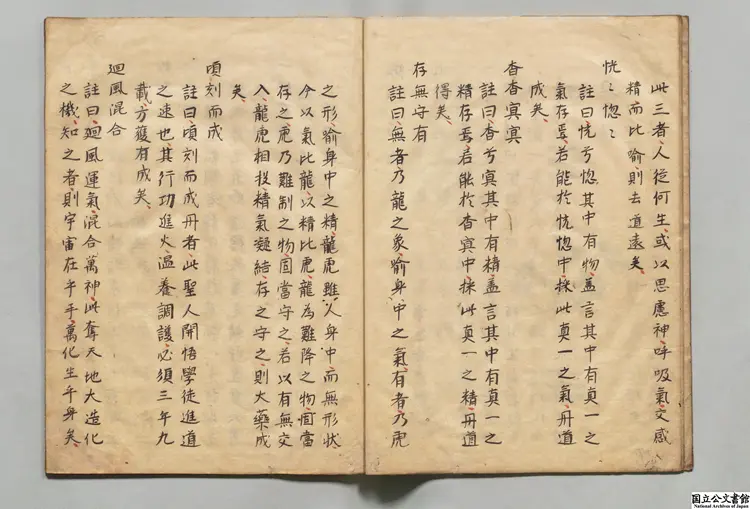 此三者、人從何生、或以思慮神、呼吸氣、交感
精而比喻、則去道遠矣、
恍〻惚〻
註曰、恍兮惚、其中有物、盖言其中有真一之
氣存焉、若能於恍惚中、採此真一之氣、丹道
成矣、
杳杳冥冥
註曰、杳兮冥、其中有精、盖言其中有真一之
精存焉、若能於杳冥中、採此真一之精、丹道
得矣、
存無守有
註曰、無者乃龍之象、喻身中之氣、有者乃虎
之形、喻身中之精、龍虎雖人身中、而無形狀
今以氣比龍、以精比虎、龍為難降之物、固當
存之、虎乃難制之物、固當守之、若以有無交
入、龍虎相投、精氣凝結、存之守之、則大藥成
矣、
頃刻而成
註曰、頃刻而成丹者、此聖人開悟學徒進道
之速也、其行功進火、温養調護、必須三年九
載、方獲有成矣、
廻風混合
註曰、廻風運氣、混合萬神、此奪天地大造化
之機、知之者、則宇宙在乎手、萬化生乎身矣、
国立公文書館
National Archives of Japan